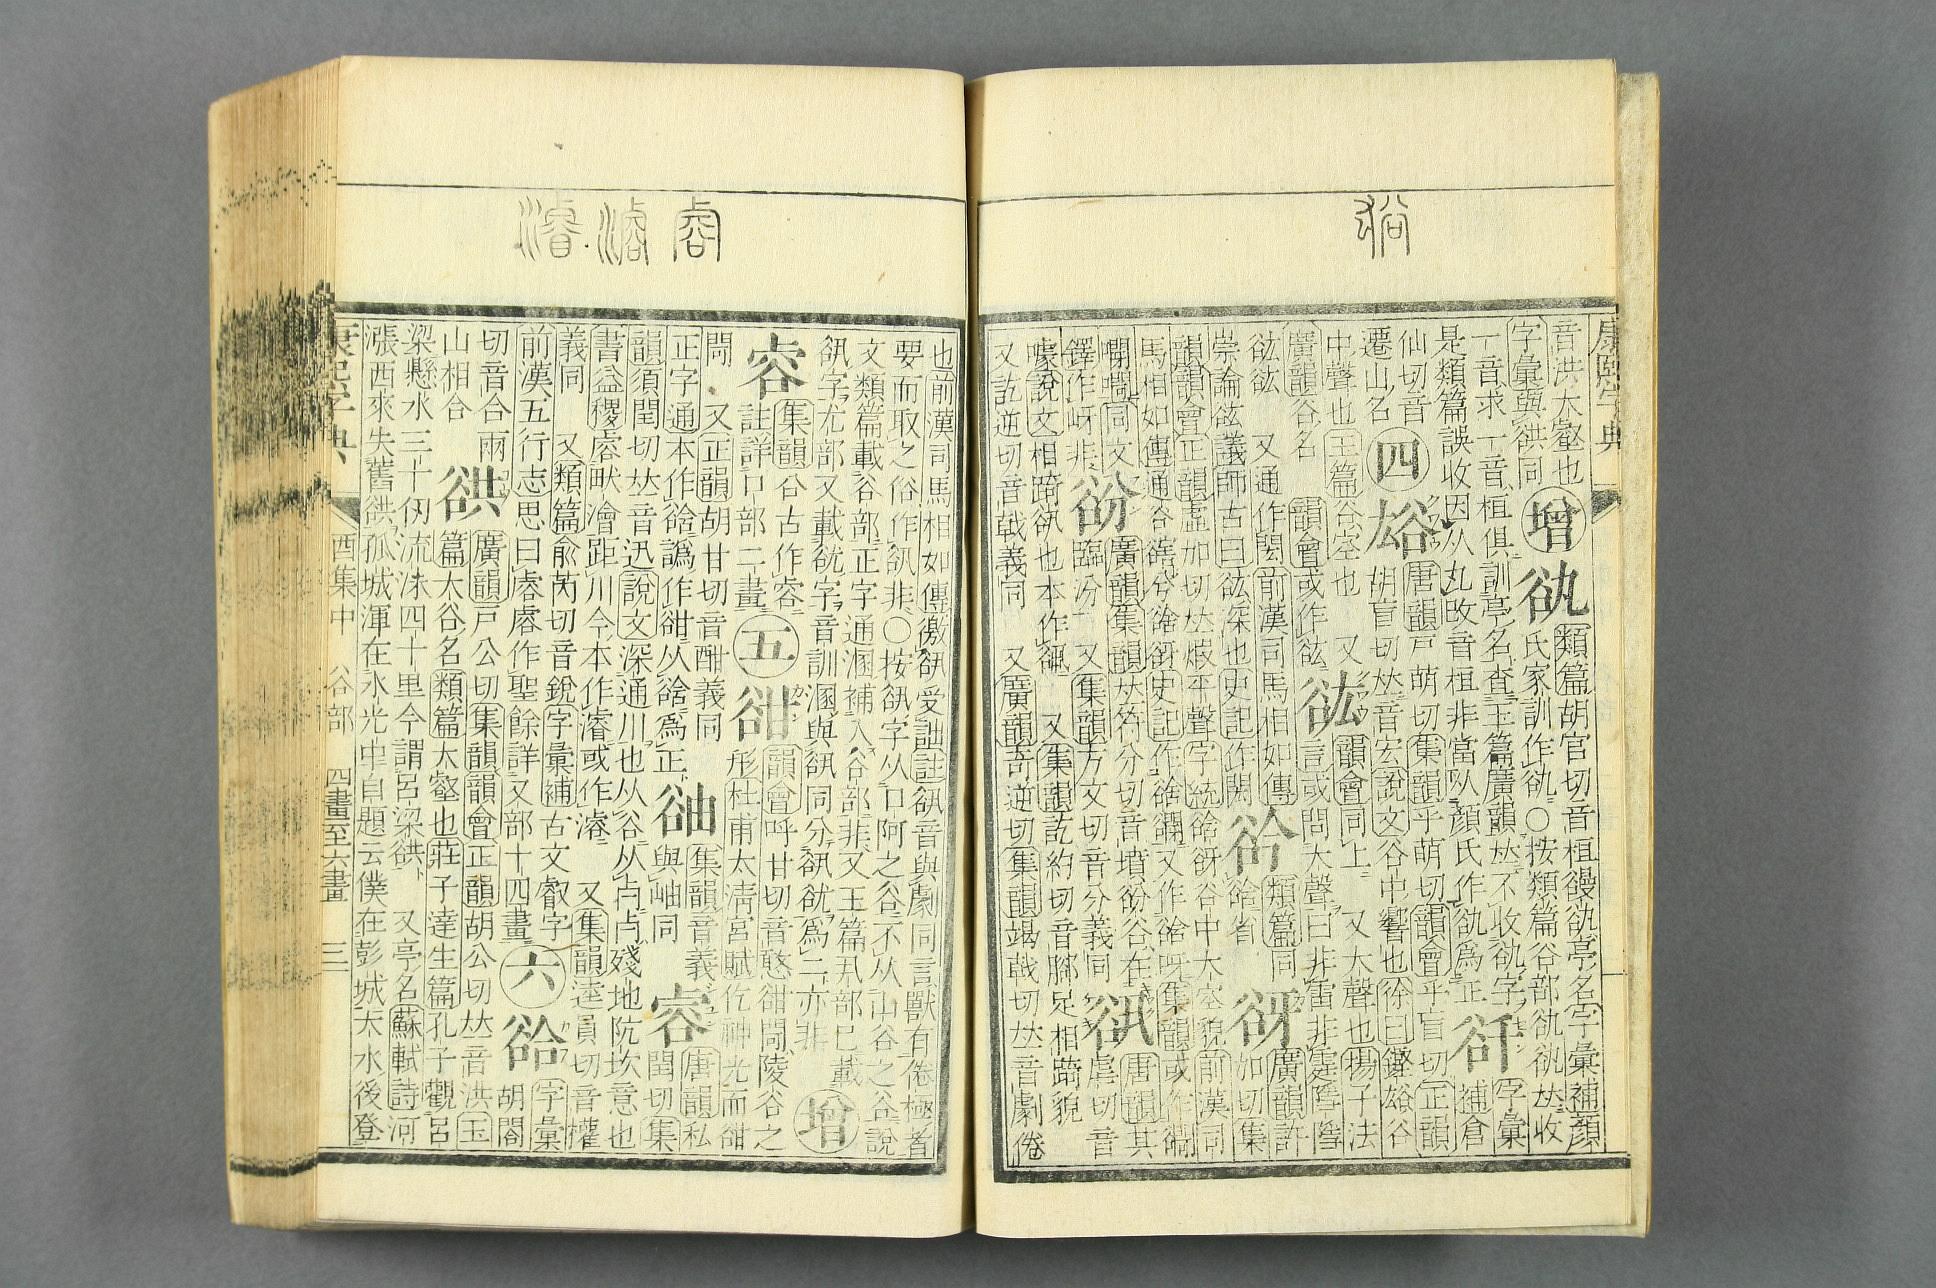 康熙字典
音洪大壑也 增 類篇胡官切音桓亭名字彙補顏
字彙與谼同 氏家訓作○按類篇谷部𠀤收
一音求一音桓俱訓亭名査玉篇廣韻𠀤不收字 谸 字彙
是類篇誤收因从丸攺音桓非當从顏氏作爲正 補倉
仙切音 四 谹 唐韻戸萌切集韻乎萌切韻會乎盲切正韻
遷山名 胡盲切𠀤音宏說文谷中響也徐曰鏗谹谷
中聲也玉篇谷空也 又韻會同上 又大聲也揚子法
廣韻谷名 韻會或作 言或問大聲曰非雷非霆隱隱
谹谹 又通作閎前漢司馬相如傳 類篇同 谺 廣韻許
崇論谹議師古曰谹深也史記作閎 谽省 加切集
韻韻會正韻虛加切𠀤煆平聲字統谽谺谷中大空貌前漢同
馬相如傳通谷豁兮谽谺史記作谽又作谽呀集韻或作
鐸作岈非 谾 廣韻集韻𠀤符分切音墳谷在 唐韻其
㘎㗿同文 臨汾 又集韻方文切音分義同 虐切音
噱說文相踦也本作 又集韻訖約切音腳足相踦貌
又訖逆切音戟義同 又廣韻奇逆切集韻竭戟切𠀤音劇倦
也前漢司馬相如傳徼受詘註音與劇同言獸有倦極者
要而取之俗作非○按字从口阿之谷不从山谷之谷說
文類篇載谷部正字通溷補入谷部非又玉篇丮部巳載 增
字尤部又載字音訓溷與同分爲二亦非
容 集韻㕣古作容 韻會呼甘切音憨谽閜陵谷之
註詳口部二畫 五 𧮰 形杜甫太淸宮賦仡神光而𧮰
閜 又正韻胡甘切音酣義同 集韻音義 睿 唐韻私
正字通本作谽譌作𧮰从谽爲正 與岫同 閏切集
韻須閏切𠀤音迅說文深通川也从谷从占占殘地阬坎意也
書益稷睿畎澮距川今本作濬或作溶 又集韻逵員切音權
義同 又類篇兪芮切音銳字彙補古文叡字 六 谽 字彙
前漢五行志思曰睿睿作聖餘詳又部十四畫 胡閤
切音合兩 谼 廣韻戸公切集韻韻會正韻胡公切𠀤音洪玉
山相合 篇大谷名類篇大壑也莊子達生篇孔子觀呂
梁懸水三十仞流沬四十里今謂呂梁谼 又亭名蘇軾詩河
漲西來失舊谼孤城渾在水光中自題云僕在彭城大水後登
康熙字典 酉集中 谷部 四畫至六畫 三